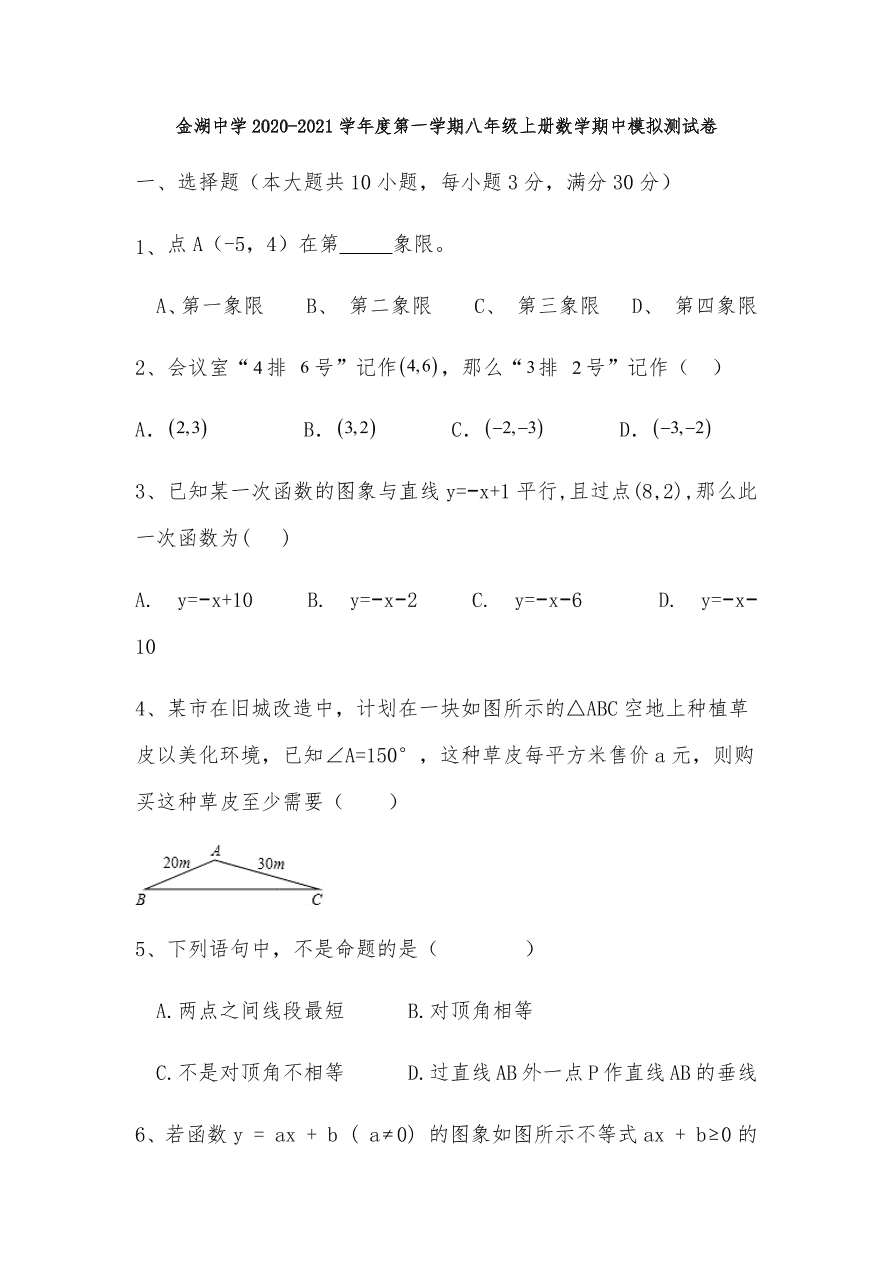 金湖中学 2020-2021 学年度第一学期八年级上册数学期中模拟测试卷
一、选择题（本大题共 10 小题，每小题 3 分，满分 30 分）
1、点 A（-5，4）在第_____象限。
A、第一象限 B、 第二象限 C、 第三象限 D、 第四象限
2、会议室“4 排 6 号”记作(4,6)，那么“3 排 2 号”记作（ ）
A．(2,3) B．(3,2) C．(−2,−3) D．(−3,−2)
3、已知某一次函数的图象与直线 y=−x+1 平行,且过点(8,2),那么此
一次函数为( )
A. y=−x+10 B. y=−x−2 C. y=−x−6 D. y=−x−
10
4、某市在旧城改造中，计划在一块如图所示的△ABC 空地上种植草
皮以美化环境，已知∠A=150°，这种草皮每平方米售价 a 元，则购
买这种草皮至少需要（ ）
A
20m 30m
B C
5、下列语句中，不是命题的是（ ）
A.两点之间线段最短 B.对顶角相等
C.不是对顶角不相等 D.过直线 AB 外一点 P 作直线 AB 的垂线
6、若函数 y = ax + b ( a≠0) 的图象如图所示不等式 ax + b≥0 的